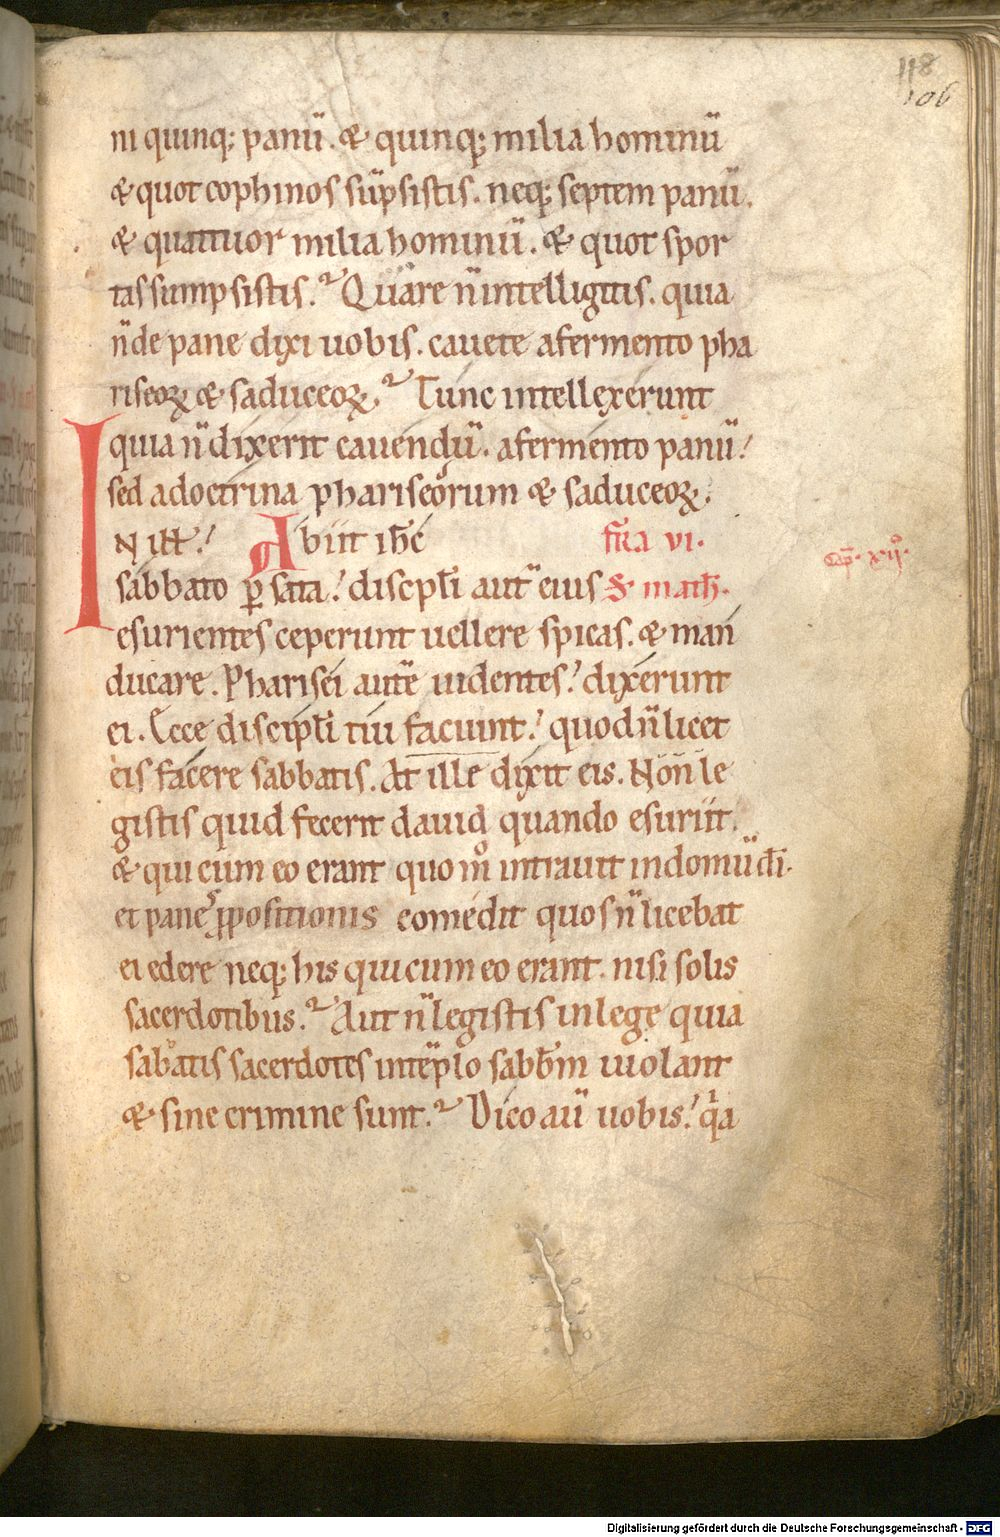 118
106
ni quinq; panū. & quinq; milia hominū
& quot cophinos sūpsistis. neq; septem panū.
& quattuor milia hominū. & quot spor
tas sumpsistis. Quare n̄ intelligitis. quia
n̄ de pane dixi uobis. cauete a fermento pha
riseoꝝ & saduceoꝝ. Tunc intellexerunt
quia n̄ dixerit cauendū. a fermento panū!
sed a doctrina phariseorum & saduceoꝝ.
IN ill̄! Abiit ih̄c fr̄ia vi.
sabbato ꝑ sata! discipl̄i aut̄ eius S. math̄. cap̄. xijº.
esurientes ceperunt uellere spicas. & man
ducare. Pharisei autē uidentes! dixerunt
ei. Ecce discipl̄i tui faciunt! quod n̄ licet
eis facere sabbatis. At ille dixit eis. Non le
gistis quid fecerit dauid quando esuriit.
& qui cum eo erant quomº intrauit in domū dī.
et panes ꝓpositionis comedit quos n̄ licebat
ei edere neq; his qui cum eo erant. nisi solis
sacerdotibus. Aut n̄ legistis in lege quia
sabatis sacerdotes in tēplo sabb̄m uiolant
& sine crimine sunt. Dico aū uobis! qͣa
Digitalisierung gefördert durch die Deutsche Forschungsgemeinschaft - DFG